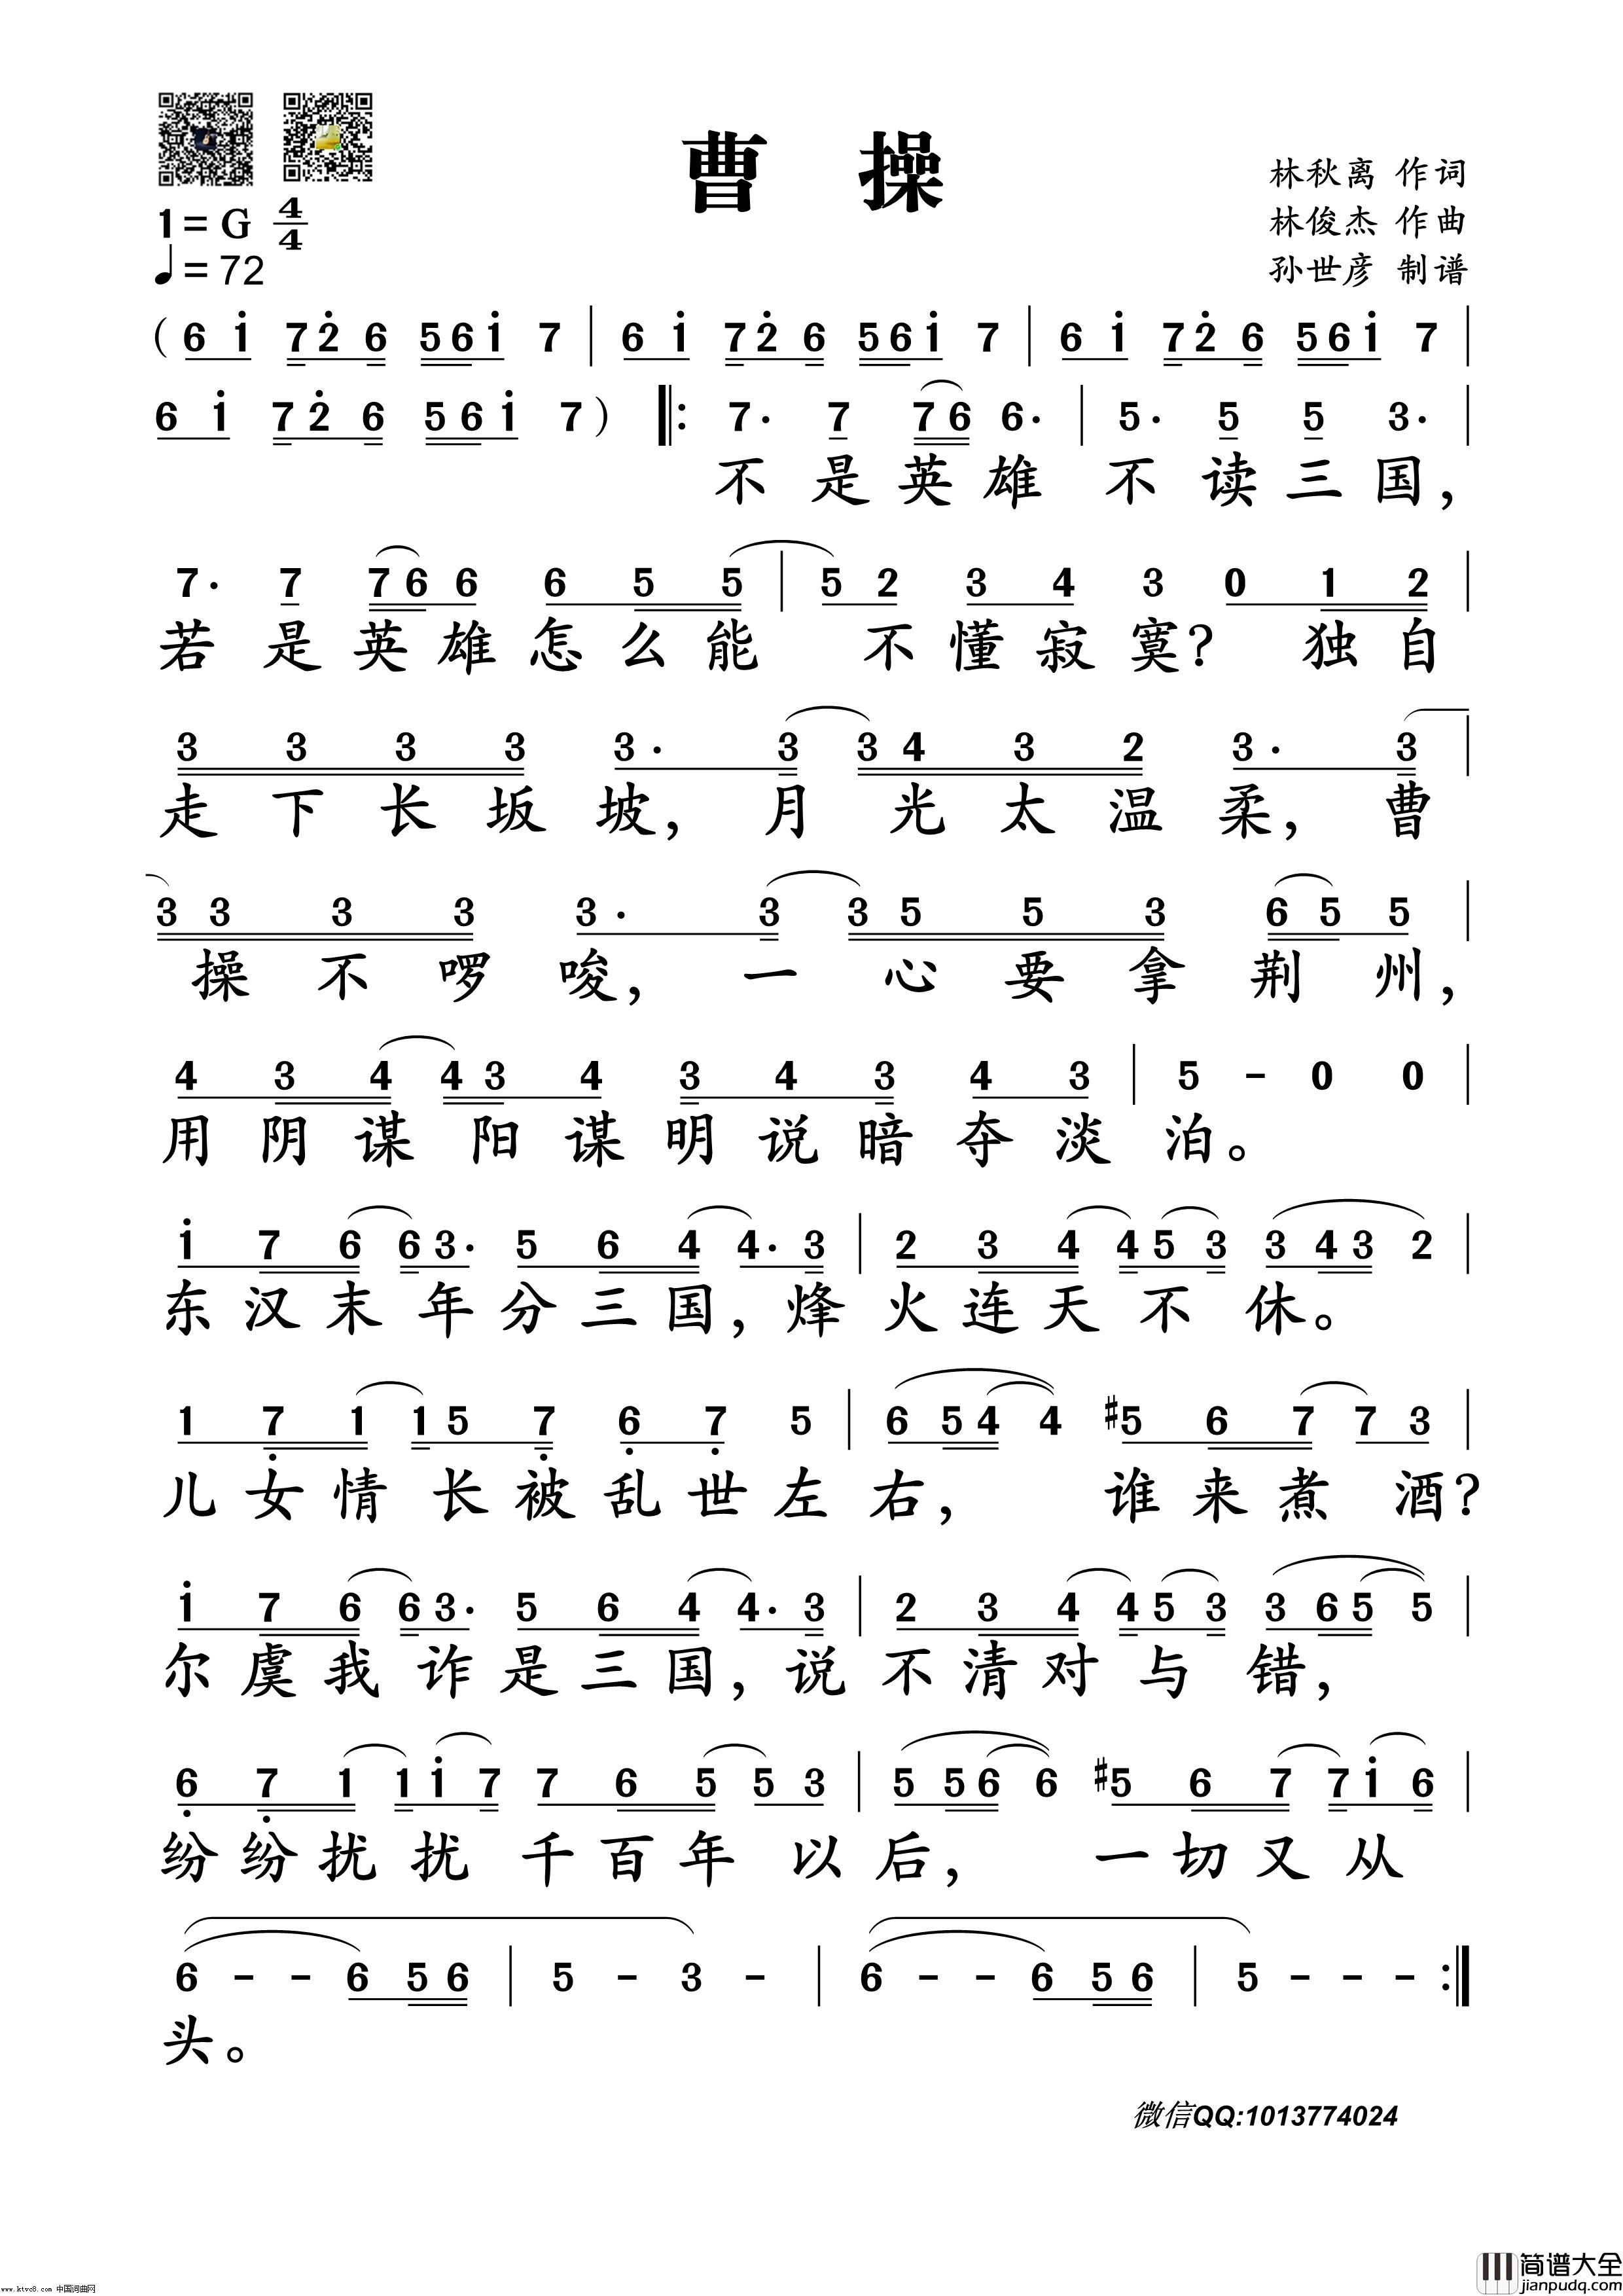 曹 操
林秋离 作词
林俊杰 作曲
孙世彦 制谱
1= G 4/4
♩= 72
( 6 i 7 2 6 5 6 i 7 | 6 i 7 2 6 5 6 i 7 | 6 i 7 2 6 5 6 i 7 |
6 i 7 2 6 5 6 i 7 ) ‖: 7· 7 7 6 6· | 5· 5 5 3· |
不 是 英 雄 不 读 三 国，
7· 7 7 6 6 6 5 5 | 5 2 3 4 3 0 1 2 |
若 是 英 雄 怎 么 能 不 懂 寂 寞？ 独 自
3 3 3 3 3· 3 3 4 3 2 3· 3 |
走 下 长 坂 坡， 月 光 太 温 柔， 曹
3 3 3 3 3· 3 3 5 5 3 6 5 5 |
操 不 啰 唆， 一 心 要 拿 荆 州，
4 3 4 4 3 4 3 4 3 4 3 | 5 - 0 0 |
用 阴 谋 阳 谋 明 说 暗 夺 淡 泊。
i 7 6 6 3· 5 6 4 4· 3 | 2 3 4 4 5 3 3 4 3 2 |
东 汉 末 年 分 三 国， 烽 火 连 天 不 休。
1 7 1 1 5 7 6 7 5 | 6 5 4 4 #5 6 7 7 3 |
儿 女 情 长 被 乱 世 左 右， 谁 来 煮 酒？
i 7 6 6 3· 5 6 4 4· 3 | 2 3 4 4 5 3 3 6 5 5 |
尔 虞 我 诈 是 三 国， 说 不 清 对 与 错，
6 7 1 1 i 7 7 6 5 5 3 | 5 5 6 6 #5 6 7 7 i 6 |
纷 纷 扰 扰 千 百 年 以 后， 一 切 又 从
6 - - 6 5 6 | 5 - 3 - | 6 - - 6 5 6 | 5 - - - :‖
头。
微信QQ:1013774024
www.ktvc8.com 中国词曲网
简谱大全
jianpudq.com